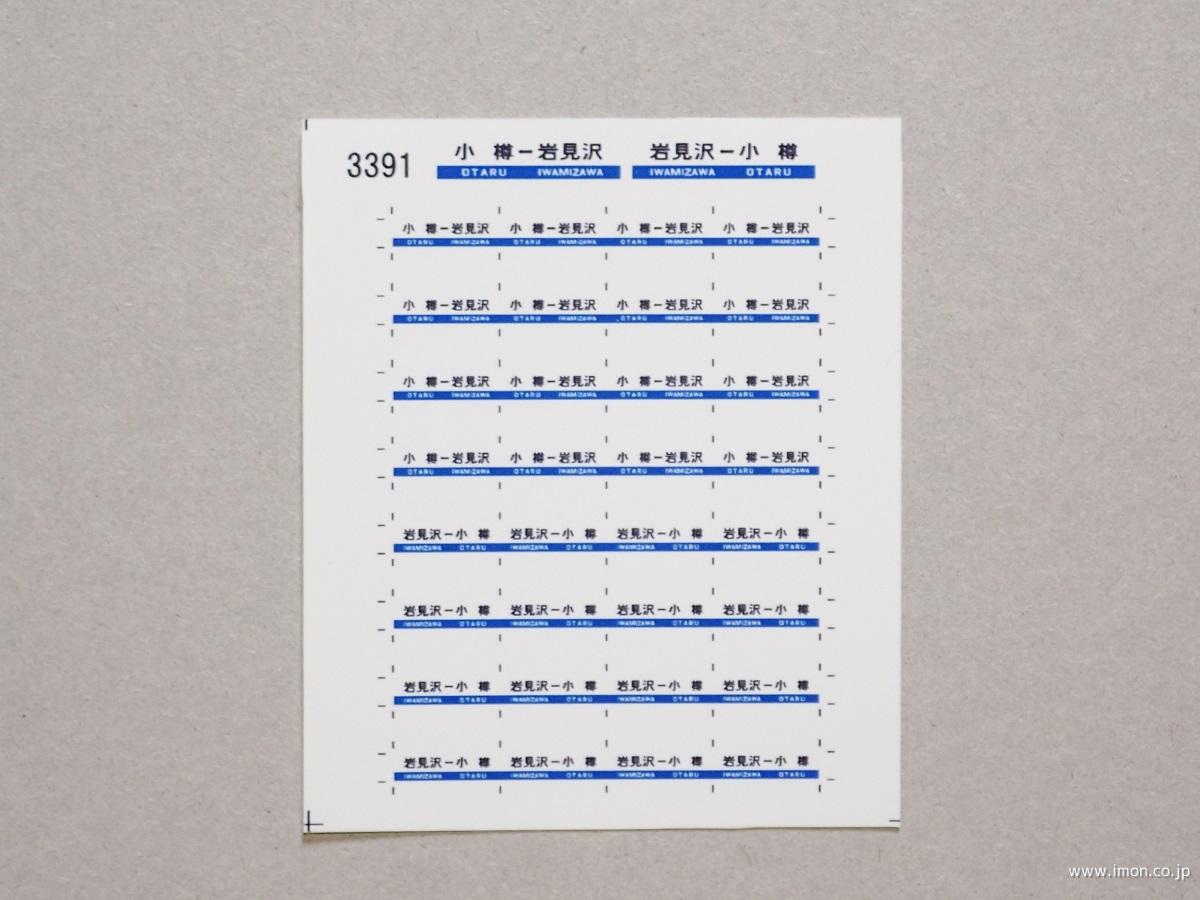 3391 小 樽ー岩見沢 岩見沢ー小 樽
OTARU IWAMIZAWA IWAMIZAWA OTARU
小 樽ー岩見沢 小 樽ー岩見沢 小 樽ー岩見沢 小 樽ー岩見沢
OTARU IWAMIZAWA OTARU IWAMIZAWA OTARU IWAMIZAWA OTARU IWAMIZAWA
小 樽ー岩見沢 小 樽ー岩見沢 小 樽ー岩見沢 小 樽ー岩見沢
OTARU IWAMIZAWA OTARU IWAMIZAWA OTARU IWAMIZAWA OTARU IWAMIZAWA
小 樽ー岩見沢 小 樽ー岩見沢 小 樽ー岩見沢 小 樽ー岩見沢
OTARU IWAMIZAWA OTARU IWAMIZAWA OTARU IWAMIZAWA OTARU IWAMIZAWA
小 樽ー岩見沢 小 樽ー岩見沢 小 樽ー岩見沢 小 樽ー岩見沢
OTARU IWAMIZAWA OTARU IWAMIZAWA OTARU IWAMIZAWA OTARU IWAMIZAWA
岩見沢ー小 樽 岩見沢ー小 樽 岩見沢ー小 樽 岩見沢ー小 樽
IWAMIZAWA OTARU IWAMIZAWA OTARU IWAMIZAWA OTARU IWAMIZAWA OTARU
岩見沢ー小 樽 岩見沢ー小 樽 岩見沢ー小 樽 岩見沢ー小 樽
IWAMIZAWA OTARU IWAMIZAWA OTARU IWAMIZAWA OTARU IWAMIZAWA OTARU
岩見沢ー小 樽 岩見沢ー小 樽 岩見沢ー小 樽 岩見沢ー小 樽
IWAMIZAWA OTARU IWAMIZAWA OTARU IWAMIZAWA OTARU IWAMIZAWA OTARU
岩見沢ー小 樽 岩見沢ー小 樽 岩見沢ー小 樽 岩見沢ー小 樽
IWAMIZAWA OTARU IWAMIZAWA OTARU IWAMIZAWA OTARU IWAMIZAWA OTARU
www.imon.co.jp